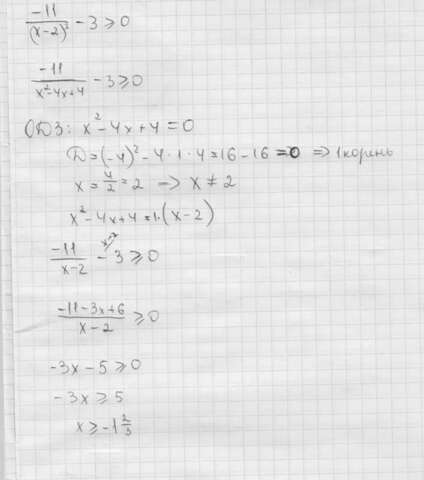 -11/(x-2)² - 3 ≥ 0
-11/(x²-4x+4) - 3 ≥ 0
ОДЗ: x² - 4x + 4 = 0
D = (-4)² - 4·1·4 = 16 - 16 = 0 ⇒ 1 корень
x = 4/2 = 2 ⇒ x ≠ 2
x² - 4x + 4 = 1·(x-2)
-11/(x-2) - 3^(x-2) ≥ 0
(-11-3x+6)/(x-2) ≥ 0
-3x - 5 ≥ 0
-3x ≥ 5
x ≥ -1 2/3